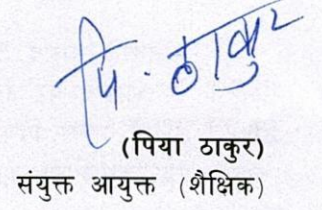 पि. ठाकुर
(पिया ठाकुर)
संयुक्त आयुक्त (शैक्षिक)